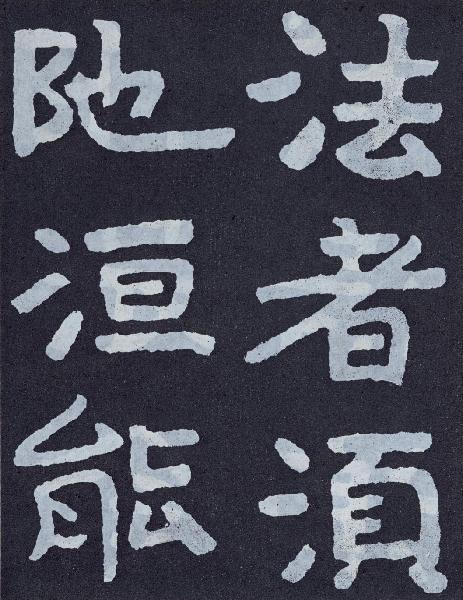 法者湏
阤洹能